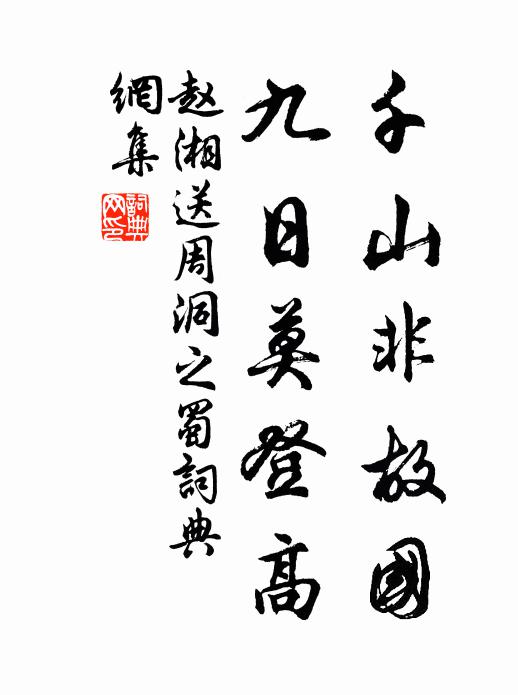 千山非故國
九日莫登高
赵湘送周洞之蜀詞典
網集
詞典
网印